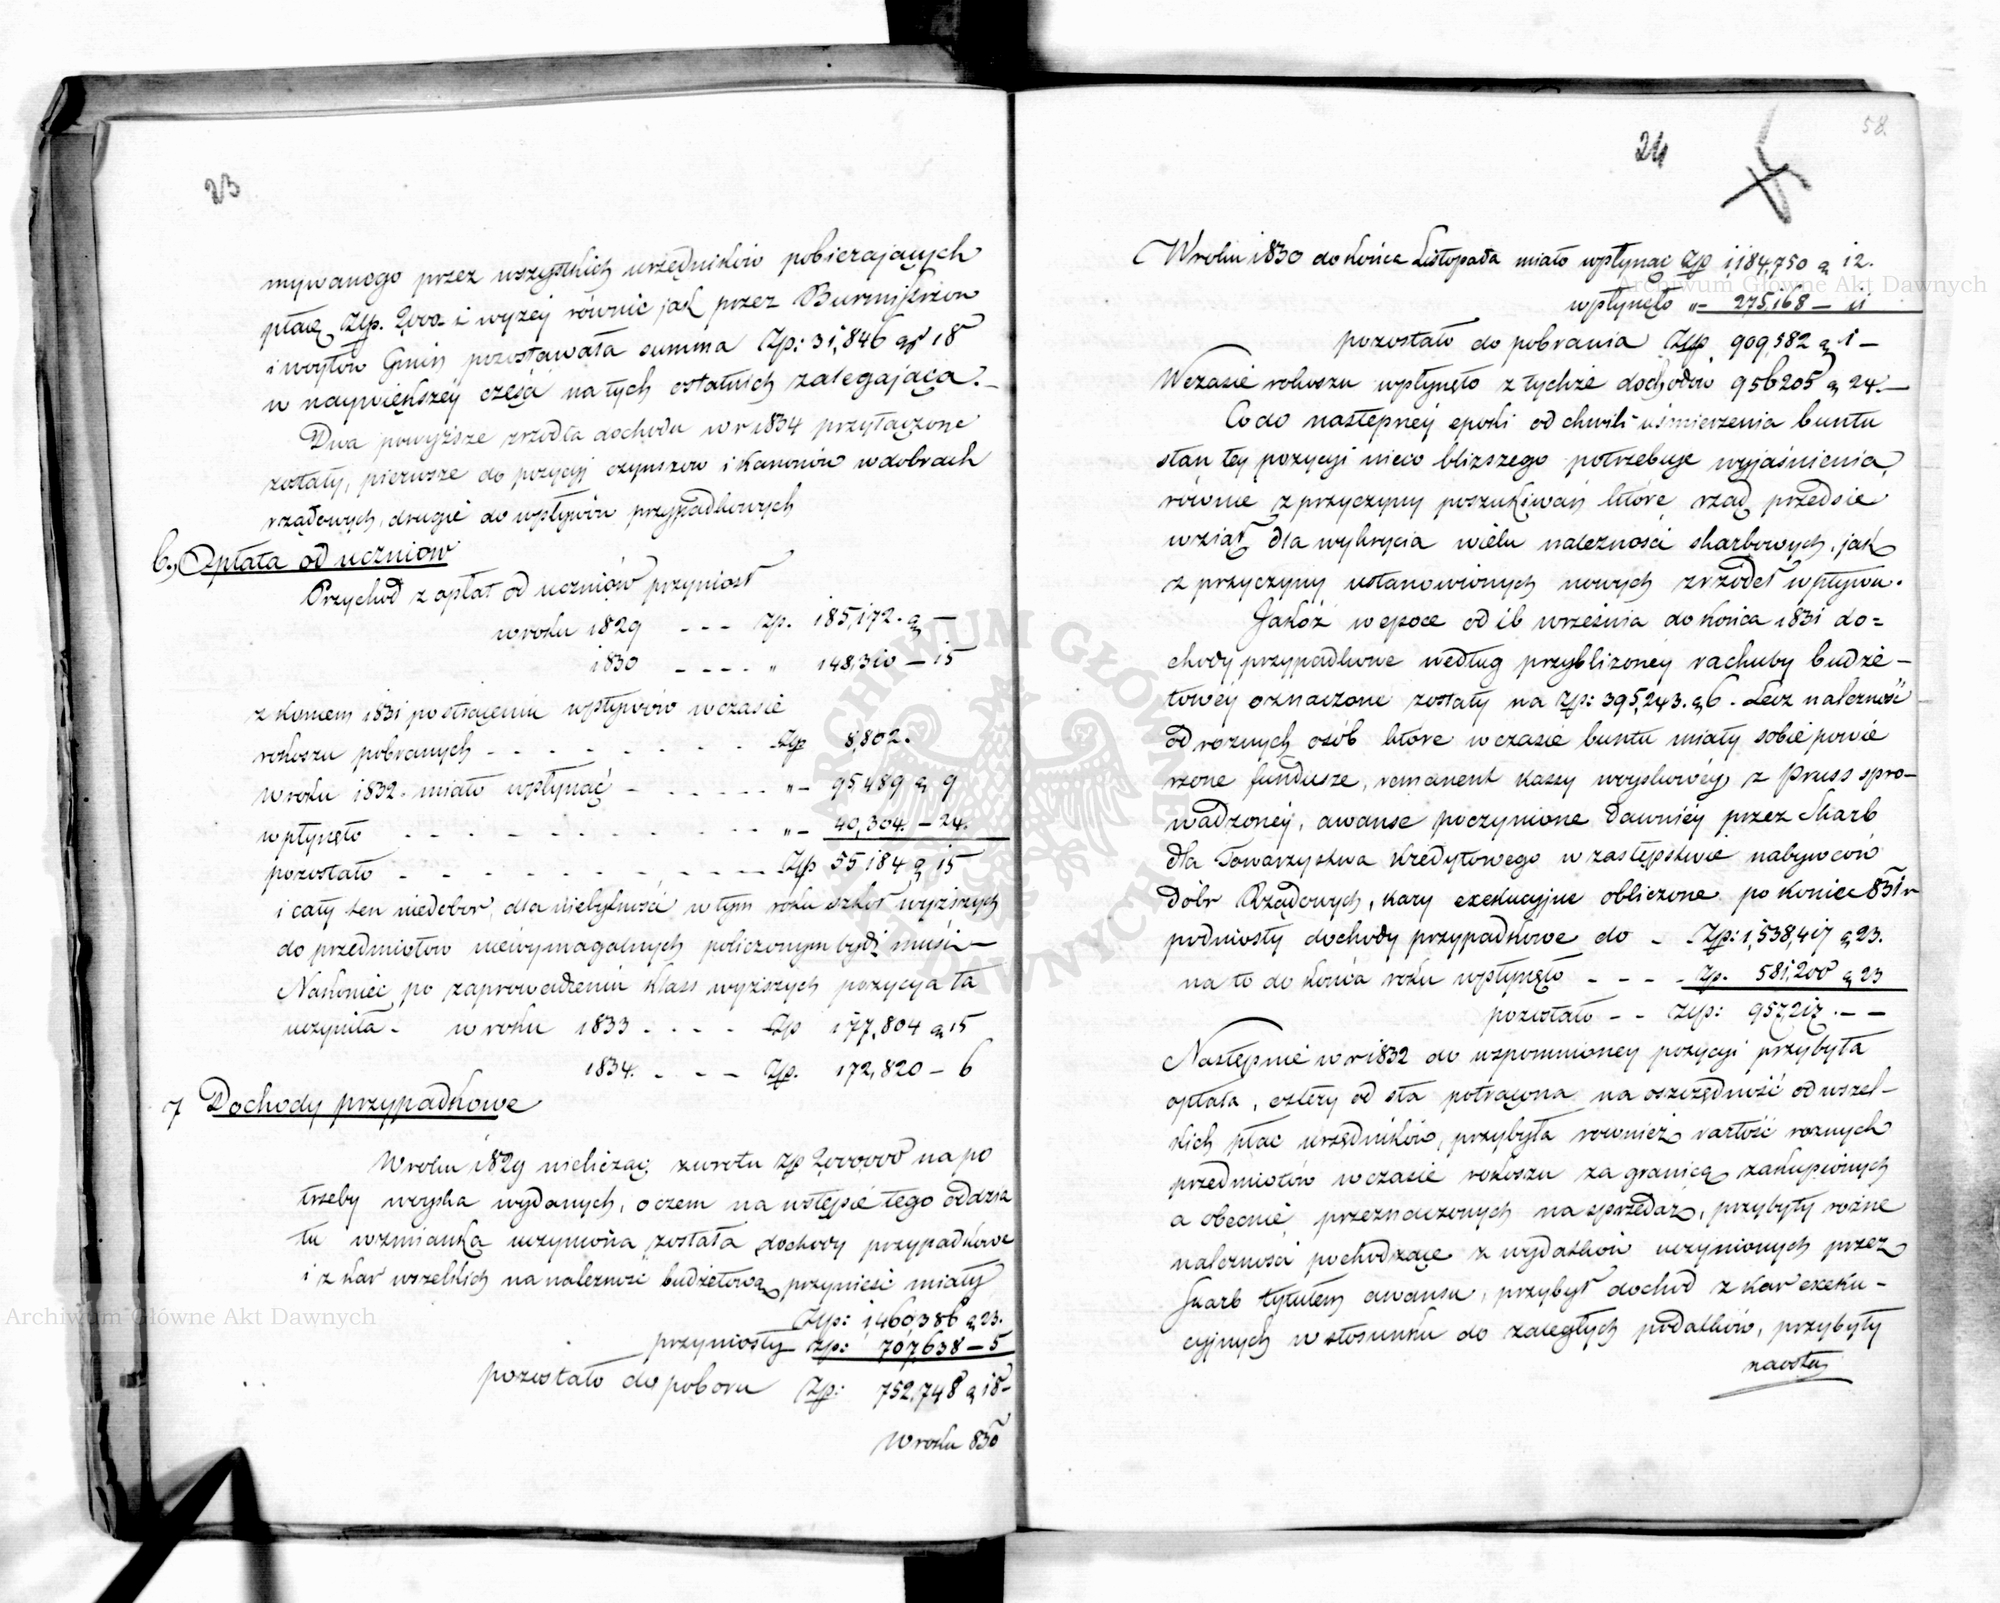 23
mywanego przez wszystkich urzędników pobierających
płacę Złp. 2000 i wyżey równie jak przez Burmistrzow
i woytów Gmin pozostawała summa Złp: 31,846 gr 18
w naywiększey części na tych ostatnich zalegająca.—
Dwa powyższe zrzodła dochodu w r 1834 przyłączone
zostały, pierwsze do pozycyj czynszow i Kanonów w dobrach
rządowych, drugie do wpływów przypadkowych
6., Opłata od uczniow
Przychod z opłat od uczniów przyniosł
w roku 1829 - - - Zp. 185,172. g —
1830 - - - - „ 148,310 — 15
z koncem 1831 po strąceniu wpływów w czasie
rokoszu pobranych - - - - - - - - Złp 8,802.
W roku 1832. miało wpłynąć - - - - - „— 95,489 g 9
wpłynęło - - - - - - - - - - - „— 40,304. — 24.
pozostało - - - - - - - - - - - Złp 55,184 g 15
i cały ten niedobor, dla niebytności w tym roku szkoł wyższych
do przedmiotow niewymagalnych policzonym bydź musi—
Nakoniec po zaprowadzeniu klass wyższych pozycya ta
uczyniła - w roku 1833 - - - - Złp 177,804 g 15
1834. - - - Złp. 172,820 — 6
7 Dochody przypadkowe
W roku 1829 nielicząc zwrotu Złp 2,000,000 na po
trzeby woyska wydanych, o czem na wstępie tego oddzia
łu wzmianka uczyniona została dochody przypadkowe
i z kar wszelkich na należność budżetową przynieść miały
Złp: 1,460,386 g 23.
przyniosły Złp: 707,638 — 5
pozostało do poboru Złp: 752,748 g 18—
W roku 830
58.
24
W roku 1830 do końca Listopada miało wpłynąc Złp 1,184,750 g 12.
wpłynęło „— 275,168 — 11
pozostało do pobrania Złp 909,582 g 1 —
W czasie rokoszu wpłynęło z tychże dochodów 956205 g 24.—
Co do następney epoki od chwili uśmierzenia buntu
stan tey pozycyi nieco bliższego potrzebuje wyjaśnienia,
równie z przyczyny poszukiwań które rząd przedsie
wziął dla wykrycia wielu należności skarbowych, jak
z przyczyny ustanowionych nowych zrzodeł wpływu.
Jakoż w epoce od 16 września do końca 1831 do=
chody przypadkowe według przybliżoney rachuby budże—
towey oznaczone zostały na Złp: 395,243. g 6. Lecz należności
od roznych osób które w czasie buntu miały sobie powie
rzone fundusze, remanent kassy woyskowéy z Pruss spro—
wadzoney, awanse poczynione dawniéy przez Skarb
dla Towarzystwa Kredytowego w zastępstwie nabywców
dóbr Rządowych, kary exekucyjne obliczone po koniec 831 r
podniosły dochody przypadkowe do - Złp: 1,538,417 g 23.
na to do końca roku wpłynęło - - - - Zp. 581,200 g 23
pozostało - - Złp: 957,217 . — —
Następnie w r 1832 do wspomnioney pozycyi przybyła
opłata, cztery od sta potrącona na oszczędność od wszel-
kich płac urzędników, przybyła rownież wartość roznych
przedmiotów w czasie rokoszu za granicą zakupionych
a obecnie przeznaczonych na sprzedaż, przybyły rożne
należności pochodzące z wydatków uczynionych przez
Skarb tytułem awansu, przybył dochod z kar exeku-
cyjnych w stosunku do zaległych podatków, przybyły